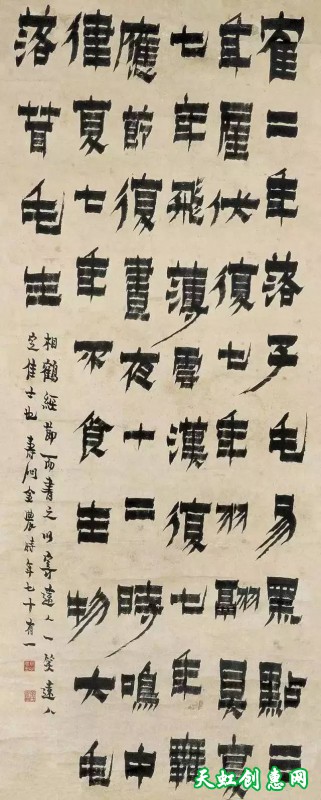 隺二年落子毛易黑點三
年產伏復七年羽翮具復
七年飛薄雲漢復七年舞
應節復晝夜十二時鳴中
律復七年不食生物大毛
落茸毛生
相鶴經節而書之以寄遠人一笑遠人
定佳士也壽門金農時年七十有一
天虹创惠网